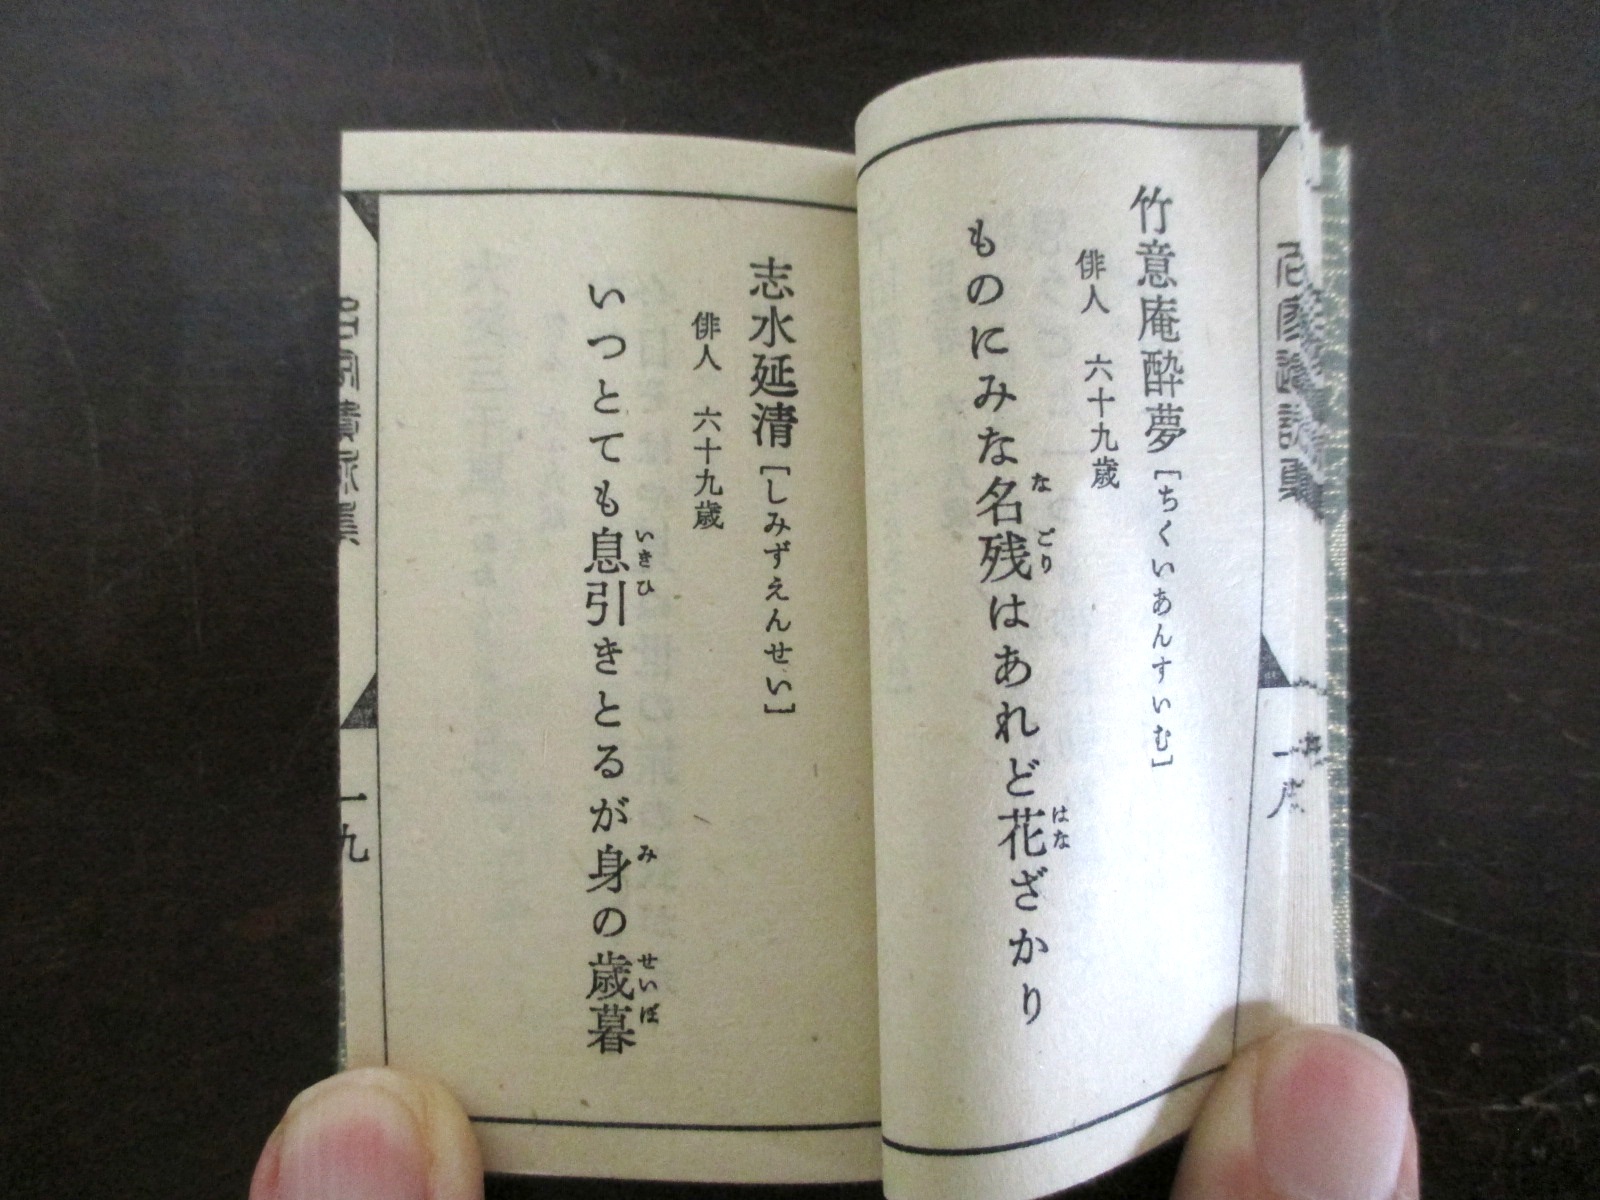 竹意庵酔夢[ちくいあんすいむ]
俳人 六十九歳
ものにみな名残はあれど花ざかり
なごり
はな
志水延清[しみずえんせい]
俳人 六十九歳
いつとても息引きとるが身の歳暮
いきひ
み
せいぼ
一九